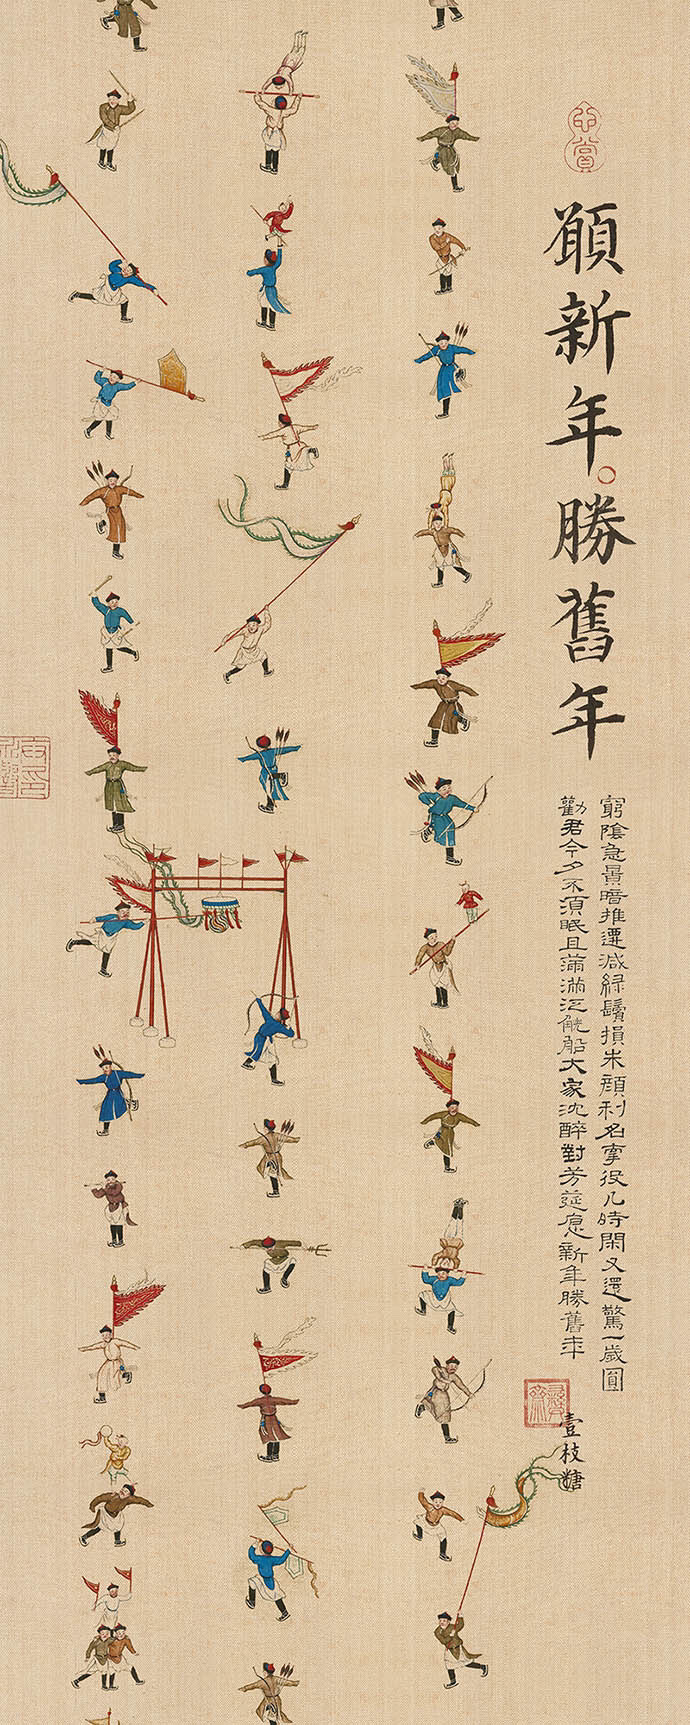 願新年。勝舊年
窮陰急景暗推遷減綠鬢損朱顏利名牽役几時閑又還驚一歲圓
勸君今夕不須眠且滿滿泛觥船大家沈醉對芳筵愿新年勝舊年
壹枝糖